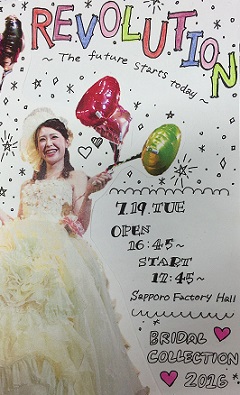 REVOLUTION
~ The future starts today ~
7.19.TUE
OPEN
16:45~
START
17:45~
Sapporo Factory Hall
BRIDAL
COLLECTION
2016